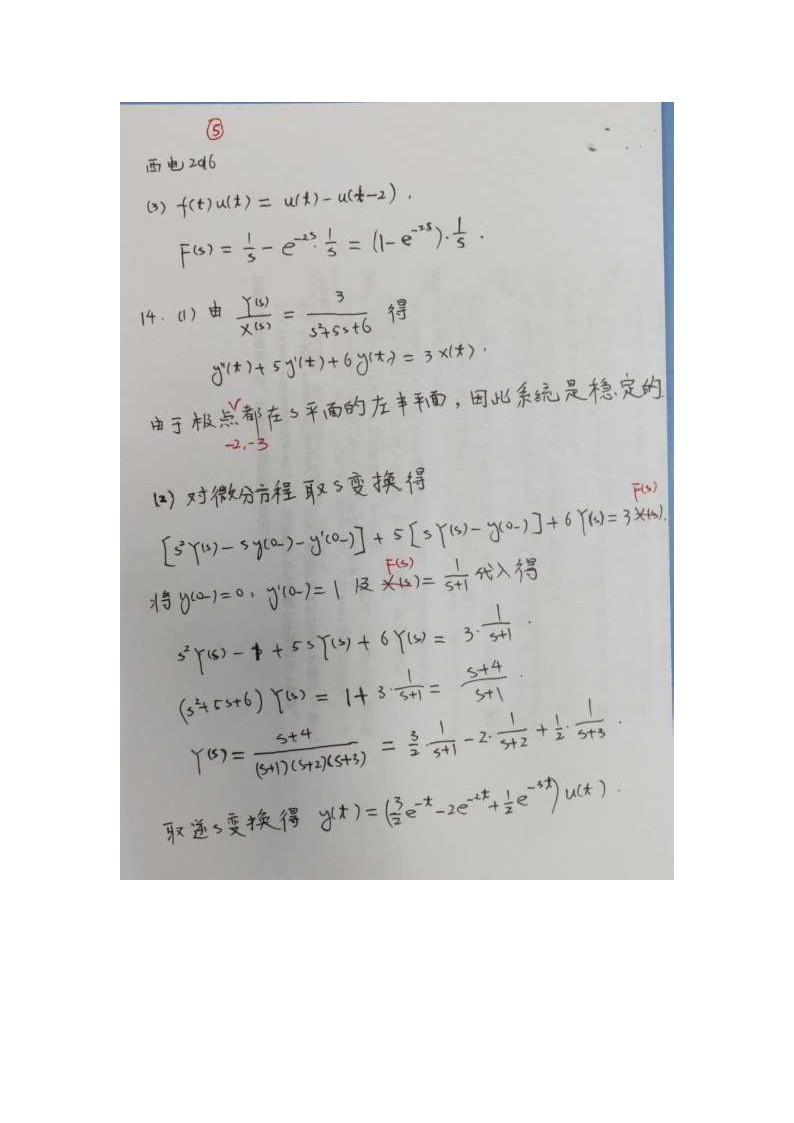 ⑤
西电2016
(3) f(t)u(t) = u(t) - u(t-2).
F(s) = 1/s - e^{-2s}·1/s = (1-e^{-2s})·1/s.
14. (1) 由 Y(s)/X(s) = 3/(s²+5s+6) 得
y''(t)+5y'(t)+6y(t) = 3x(t).
由于极点都在s平面的左半平面,因此系统是稳定的.
-2, -3
(2) 对微分方程取s变换得
F(s)
[s²Y(s)-sy(0-)-y'(0-)] + 5[sY(s)-y(0-)] + 6Y(s) = 3X(s).
F(s)
将 y(0-)=0, y'(0-)=1 及 X(s) = 1/(s+1) 代入得
s²Y(s) - 1 + 5sY(s) + 6Y(s) = 3·1/(s+1).
(s²+5s+6)Y(s) = 1+3·1/(s+1) = (s+4)/(s+1).
Y(s) = (s+4)/((s+1)(s+2)(s+3)) = 3/2·1/(s+1) - 2·1/(s+2) + 1/2·1/(s+3).
取逆s变换得 y(t) = (3/2e^{-t} - 2e^{-2t} + 1/2e^{-3t})u(t).